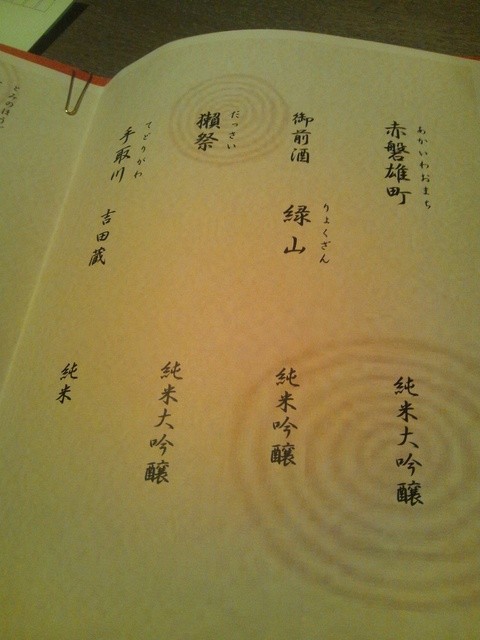 赤磐雄町
あかいわおまち
純米大吟醸
御前酒
緑山
りょくざん
純米吟醸
獺祭
だっさい
純米大吟醸
手取川
てどりがわ
吉田蔵
純米